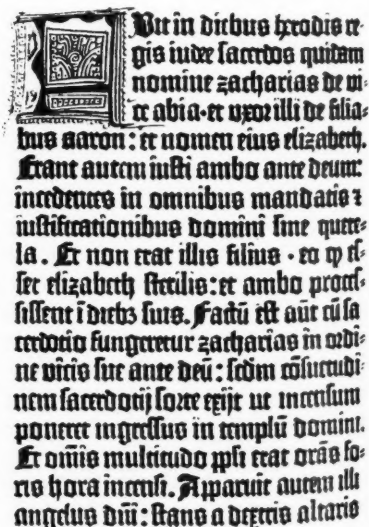 Fuit in diebus herodis re⸗
gis iudee sacerdos quidam
nomine zacharias de vi⸗
ce abia·et vxor illi de filia⸗
bus aaron : et nomen eius elizabeth.
Erant autem iusti ambo ante deum:
incedentes in omnibus mandatis ⁊
iustificationibus domini sine quere⸗
la. Et non erat illis filius · eo ꝙ es⸗
set elizabeth sterilis: et ambo proces⸗
sissent ĩ diebꝫ suis. Factũ est aũt cũ sa
cerdotio fungeretur zacharias in ordi⸗
ne vicis sue ante deũ: scdm cõsuetudi⸗
nem sacerdotij sorte exijt ut incensum
poneret ingressus in templũ domini.
Et om̃is multitudo ppľi erat orãs fo⸗
ris hora incensi. Apparuit autem illi
angelus dñi: stans a dextris altaris